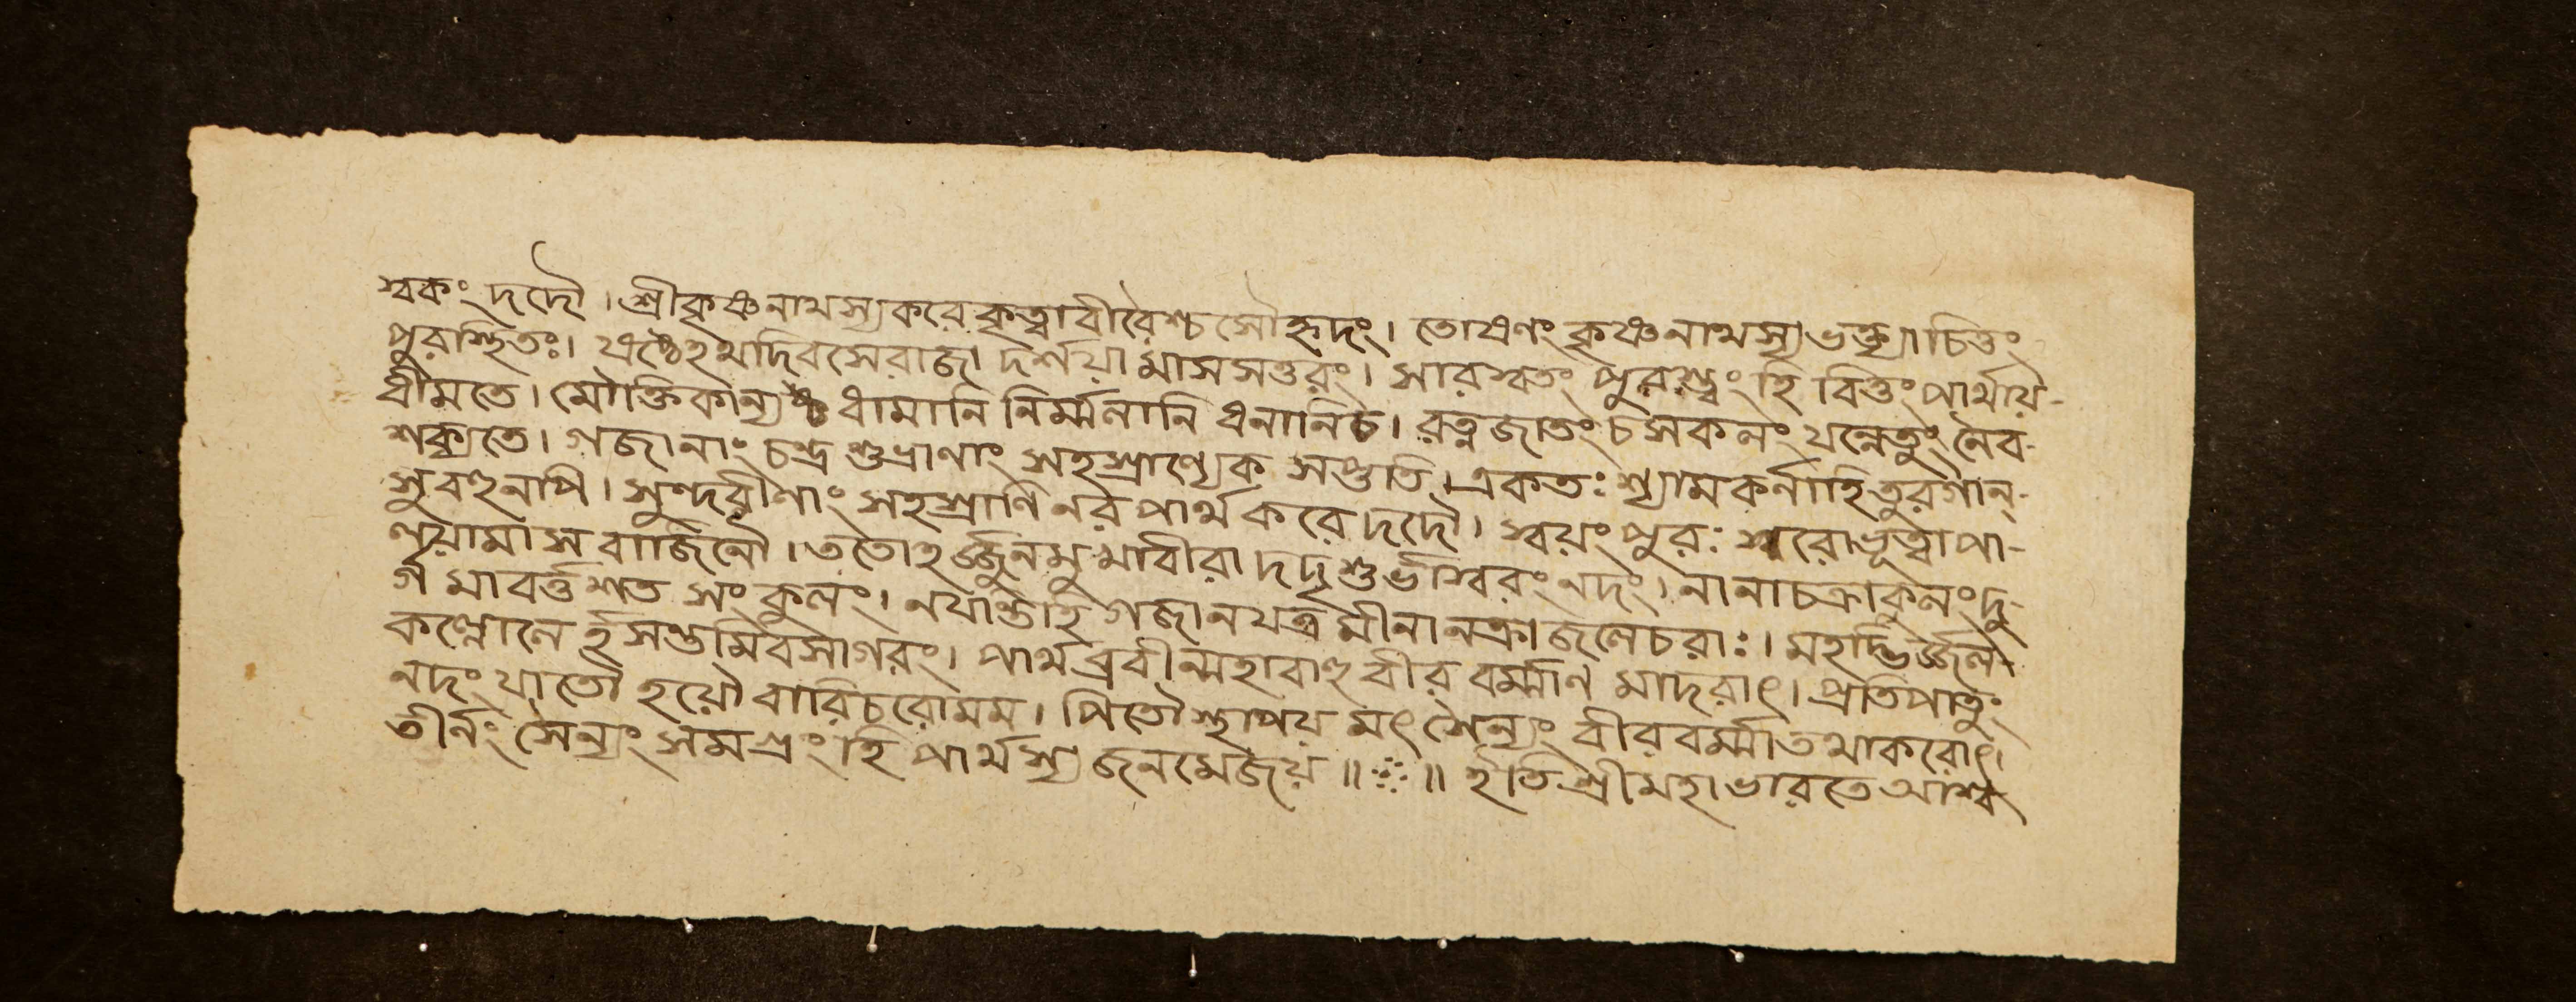 স্বকং দদৌ। শ্রীকৃষ্ণনাথস্য করে কৃত্বা বীরৈশ্চ সৌহৃদং। তোষণং কৃষ্ণনাথস্য ভক্ত্যা চিত্তং
পুরস্থিতঃ। ষষ্ঠেঽথ দিবসে রাজা দর্শয়ামাস সত্তরং। সারস্বতং পুরস্থং হি বিত্তং পার্থায়-
ধীমতে। মৌক্তিকান্যথ ধামানি নির্ম্মলানি ধনানি চ। রত্নজাতং চ সকলং যন্নেতুং নৈব-
শক্যতে। গজানাং চন্দ্রশুভ্রাণাং সহস্রাণ্যেক সপ্ততি। একতঃ শ্যামকর্নাহি তুরগান্-
সুবহুনপি। সুন্দরীণাং সহস্রাণি নর পার্থ করে দদৌ। স্বয়ং পুরঃ শরোভূত্বা পা-
লয়ামাস বাজিনৌ। ততোঽর্জ্জুনমুখাবীরা দদৃশুর্ভাস্বরং নদং। নানাচক্রাকুলং দু-
র্গমাবর্ত্তশত সংকুলং। নযান্তিহি গজানযত্র মীনানক্রাজলেচরাঃ। মহদ্ভির্জ্জল
কল্লোলৈর্হসন্তমিবসাগরং। পার্থব্রবীন্মহাবাহু বীরবর্ম্মাণ মাদরাৎ। প্রতিপাতুং
নদং যাতৌ হয়ৌ বারিচরোমম। পিতৌস্থাপয় মৎ শৈন্যং বীরবর্ম্মাতথাকরোৎ।
তীর্নং সৈন্যং সমগ্রং হি পার্থশ্য জনমেজয়॥ ჻ ॥ ইতি শ্রীমহাভারতে আশ্ব